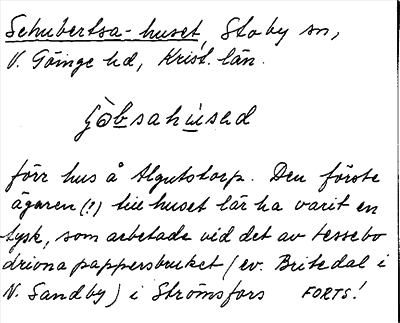 Schubertsa-huset, Stoby sn,
V. Göinge hd, Krist. län.
förr hus å Algutstorp. Den förste
ägaren (?) till huset lär ha varit en
tysk, som arbetade vid det av Lessebo
drivna pappersbruket (ev. Britedal i
N. Sandby) i Strömsfors FORTS!